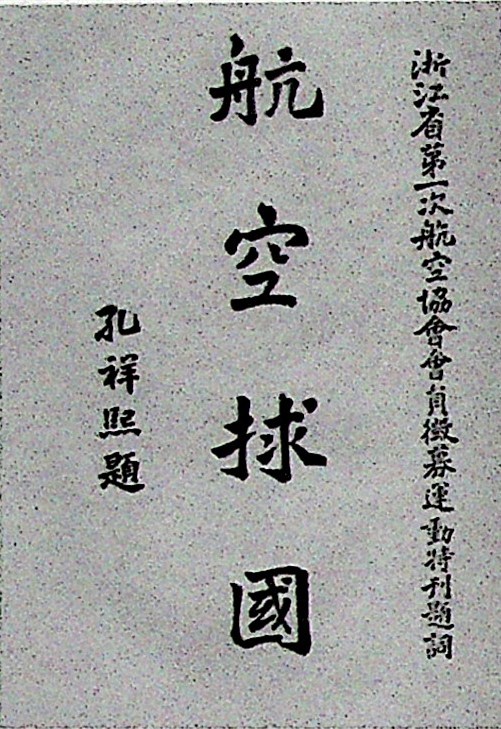 浙江省第一次航空協會會員徵募運動特刊題詞
航空捄國
孔祥熙題